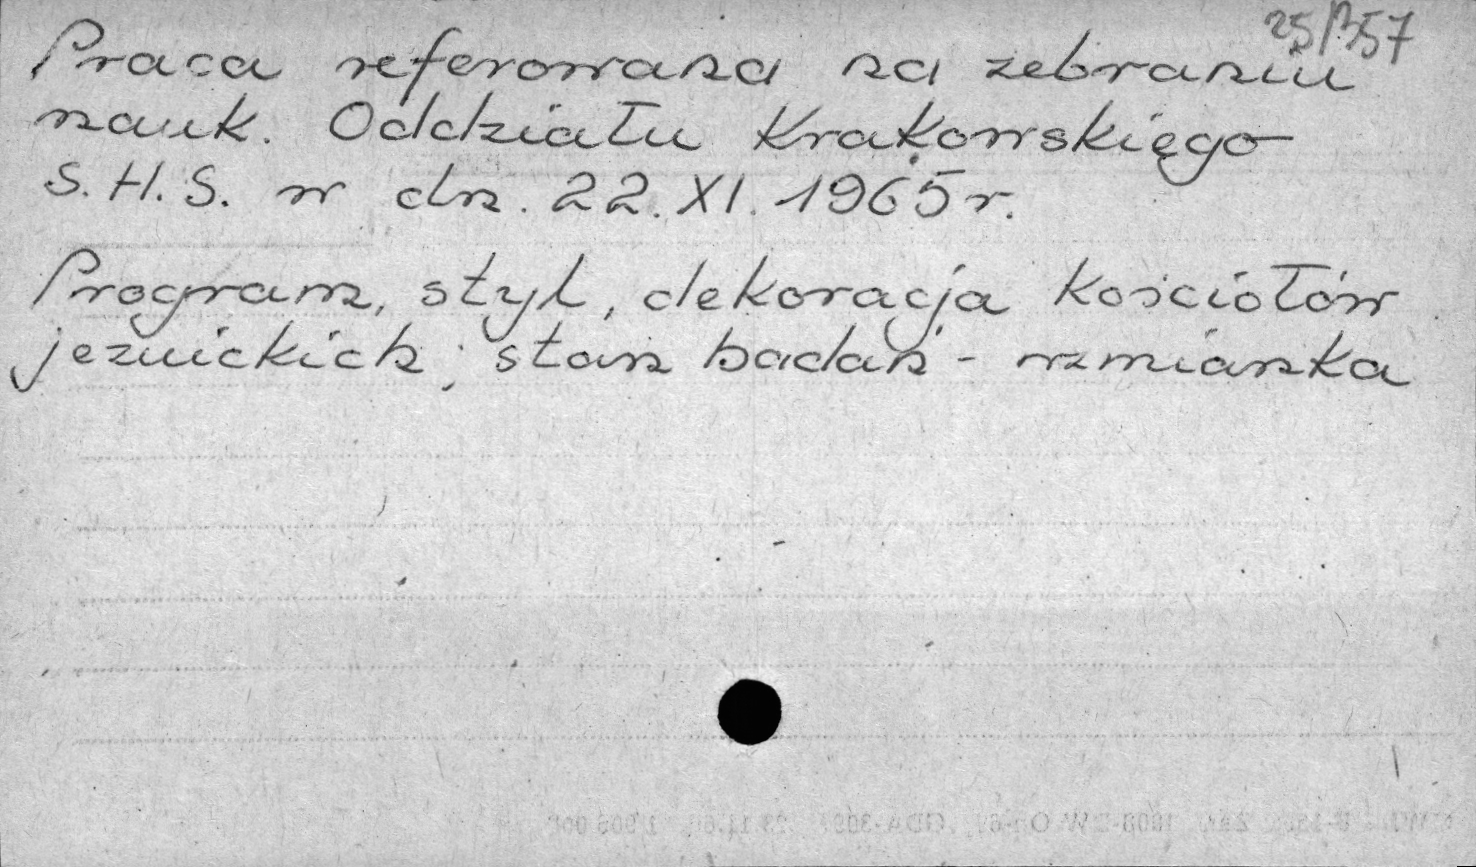 25/357
Praca referowana na zebraniu
nauk. Oddziału Krakowskiego
S.H.S. w dn. 22.XI.1965r.
Program, styl, dekoracja kościołów
jezuickich; stan badań - wzmianka